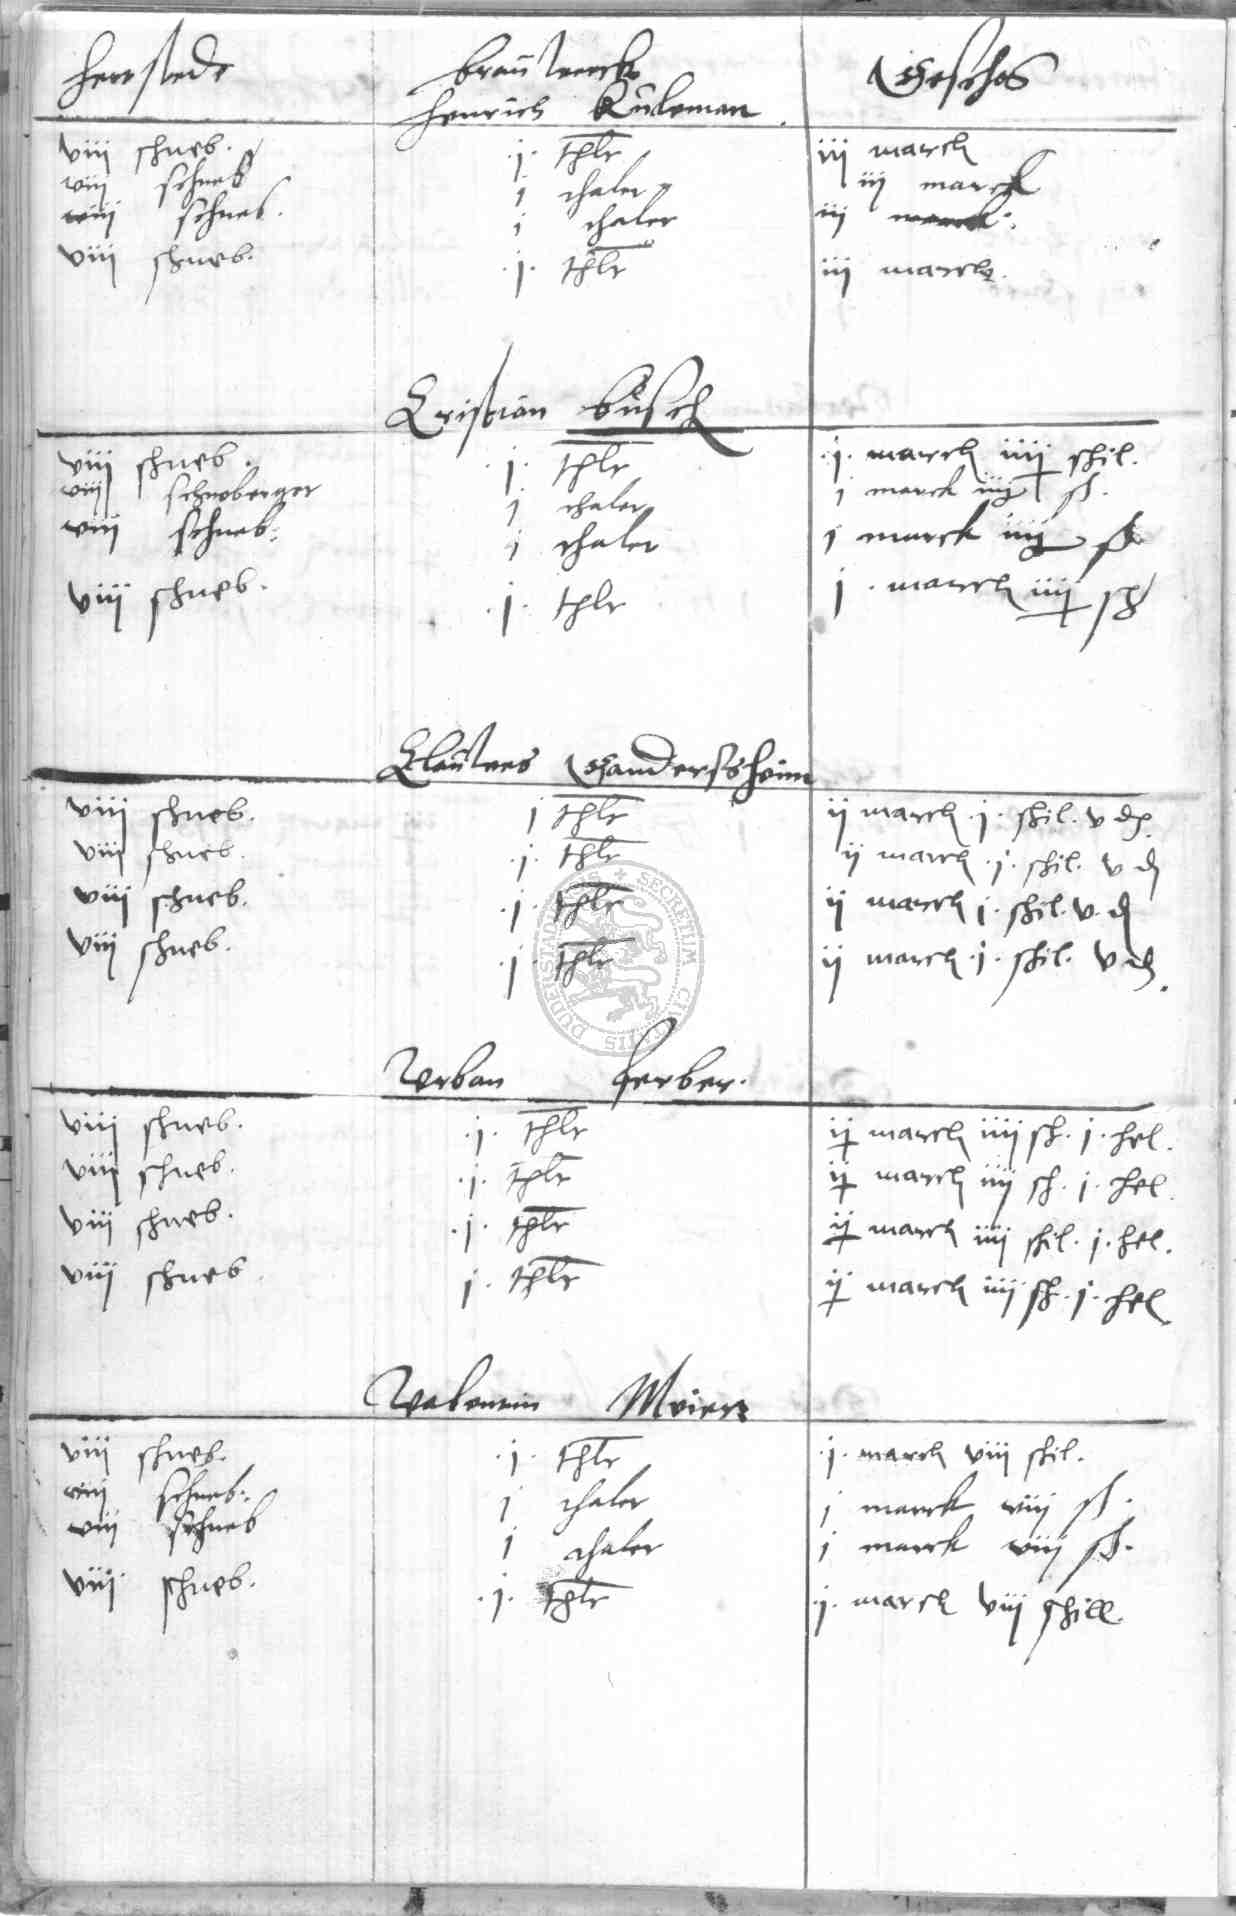 herrstede braüwerck Geschos
Henrich Küleman
viii schneb. .j. thlr iij march
viij schneb j thaler iij marck
viij schneb. j thaler iij marck.
viij schneb. .j. thlr iij march.
Cristian büsch
viij schneb. .j. thlr .j. march iiij schil.
viij schneberger j thaler j marck iiij ß.
viij schneb: j thaler j marck iiij ß
viij schneb. .j. thlr j. march iiij sch
Clauwes Gandersheim
viij schneb. j thlr ij march .j. schil. v d.
viij schneb. .j. thlr ij march .j. schil. v d
viij schneb. .j. thlr ij march j. schil. v. d
viij schneb. .j. thlr ij march .j. schil. v d.
Vrban ferber.
viij schneb. .j. thlr ij march iiij sch. j. hel.
viij schneb. .j. thlr ij march iiij sch. j. hel.
viij schneb. .j. thlr ij march iiij schil. j. hel.
viij schneb. j. thlr ij march iiij sch. j. hel.
Valentin Meier
viij schneb. .j. thlr .j. march viij schil.
viij schneb: j thaler j marck viij ß.
viij schneb j thaler j marck viij ß.
viij. schneb. .j. thlr .j. march viij schill.
SECRETUM CIVITATIS DUDERSTADENSIS